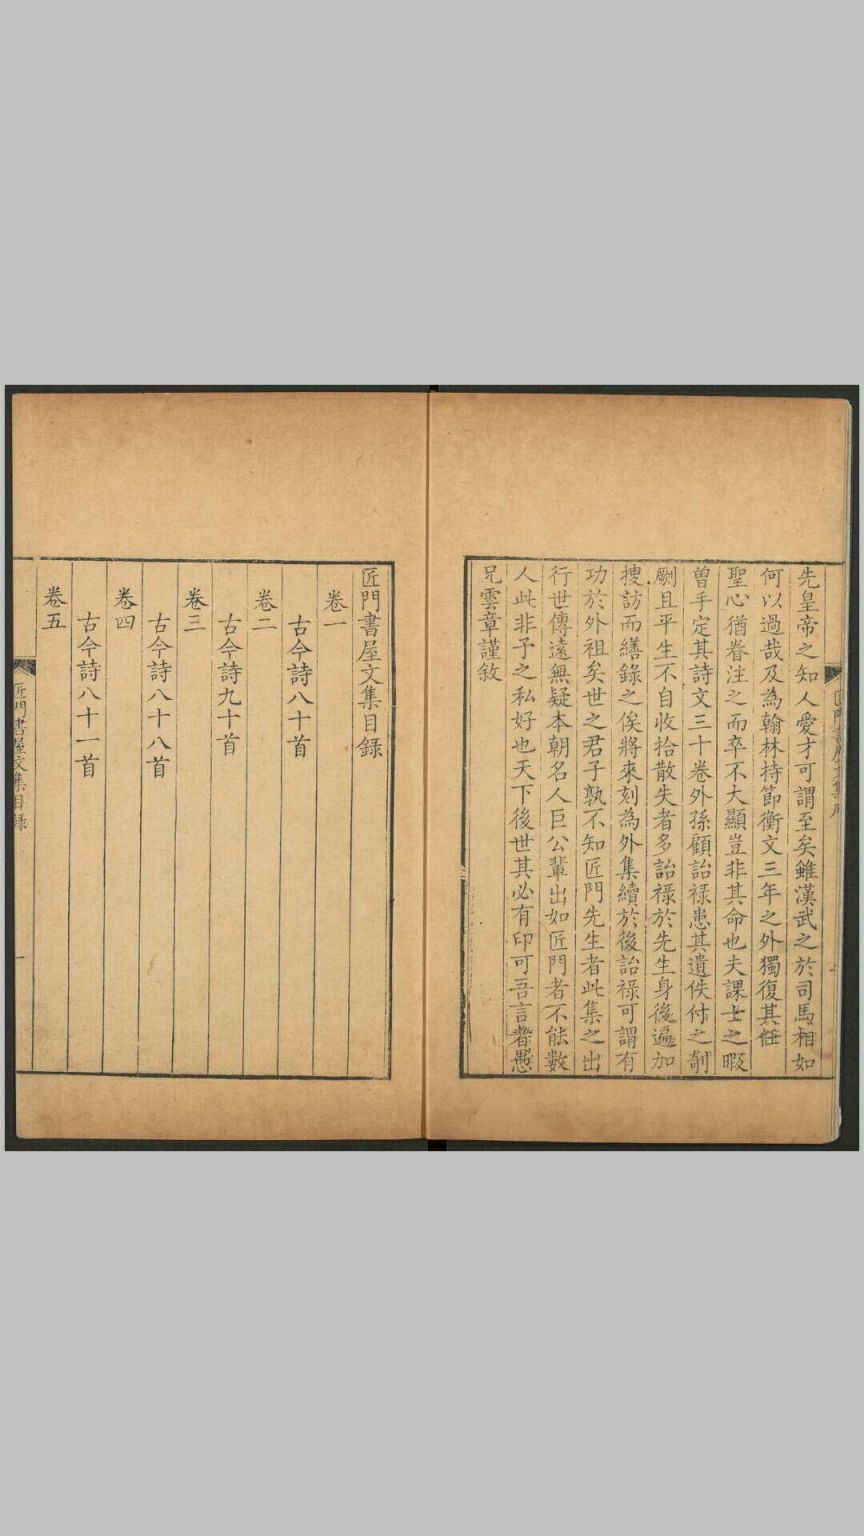 先皇帝之知人愛才可謂至矣雖漢武之於司馬相如
何以過哉及為翰林持節衡文三年之外獨復其任
聖心猶眷注之而卒不大顯豈非其命也夫課士之暇
曽手定其詩文三十卷外孫顧詒禄患其遺佚付之剞
劂且平生不自收拾散失者多詒禄於先生身後遍加
搜訪而繕錄之俟將來刻為外集續於後詒禄可謂有
功於外祖矣世之君子孰不知匠門先生者此集之出
行世傳遠無疑本朝名人巨公輩出如匠門者不能數
人此非予之私好也天下後世其必有印可吾言者愚
兄雲章謹敘
匠門書屋文集目録
卷一
古今詩八十首
卷二
古今詩九十首
卷三
古今詩八十八首
卷四
古今詩八十一首
卷五
匠門書屋文集目録
一